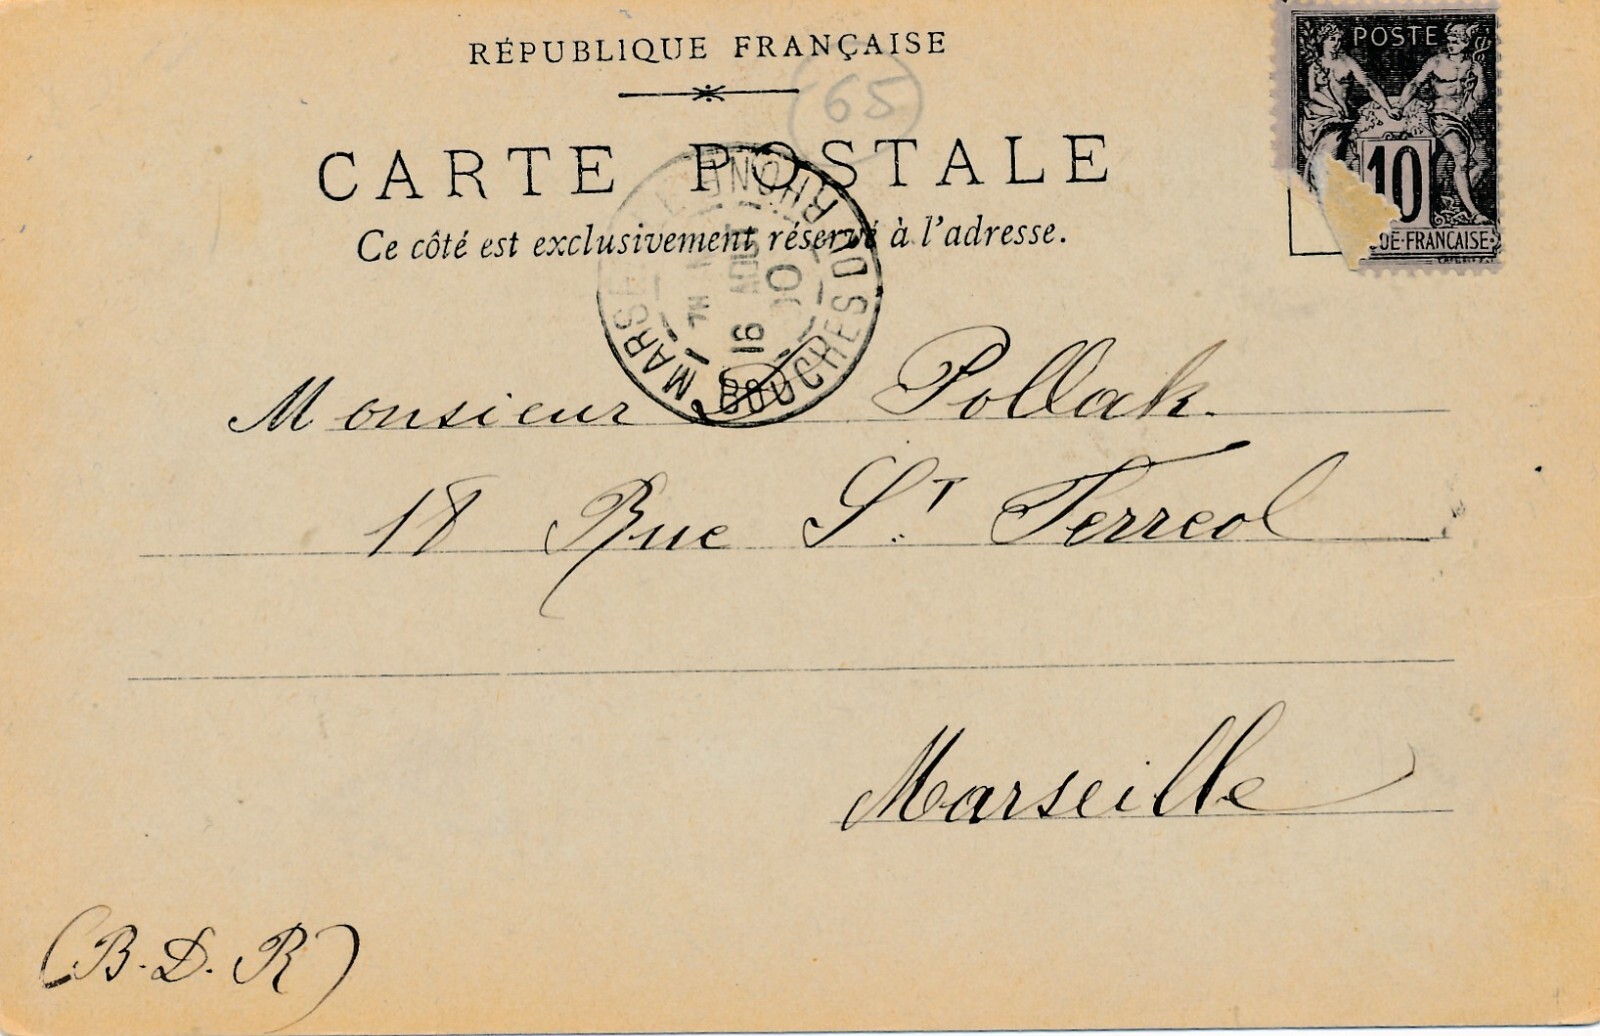 RÉPUBLIQUE FRANÇAISE
65
POSTE
10
DE-FRANCAISE
CARTE POSTALE
Ce côté est exclusivement réservé à l'adresse.
BOUCHES DU RHONE
16
AOUT
00
Monsieur Pollak.
18 Rue St. Ferreol
Marseille
(B. D. R)